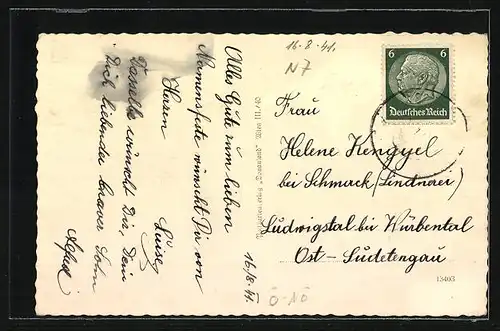 16.8.41.
N7
16./8. 41.
Alles Gute zum lieben
Namensfeste wünscht Dir von
Herzen
Luise
Dasselbe wünscht Dir, Dein
Dich liebender braver Sohn
Alfred
6 6
Deutsches Reich
Frau
Helene Kengyel
bei Schmack (Lindnerei)
Ludwigstal bei Würbental
Ost-Sudetengau
13403
Ö-NÖ